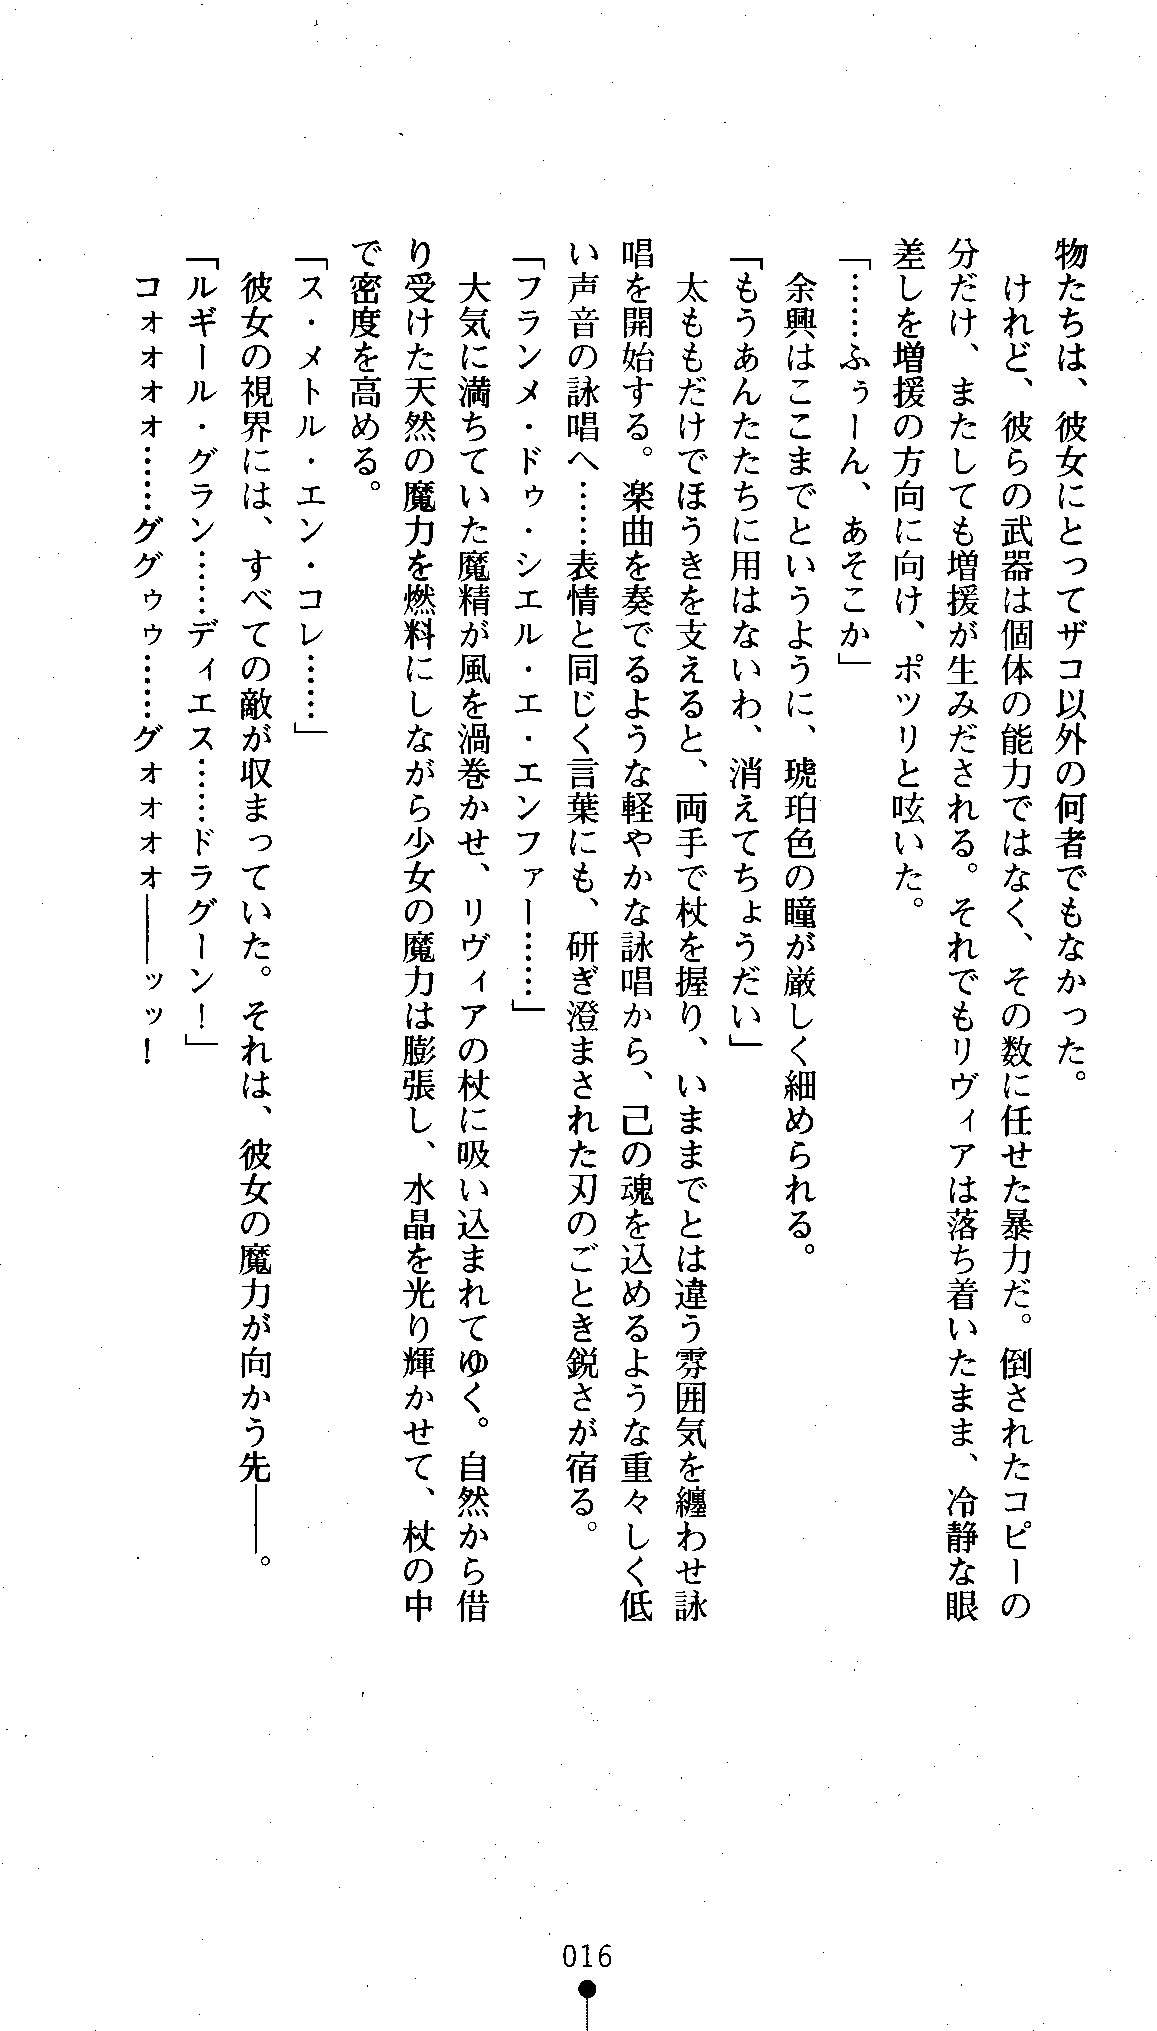 物たちは、彼女にとってザコ以外の何者でもなかった。
けれど、彼らの武器は個体の能力ではなく、その数に任せた暴力だ。倒されたコピーの
分だけ、またしても増援が生みだされる。それでもリヴィアは落ち着いたまま、冷静な眼
差しを増援の方向に向け、ポツリと呟いた。
「……ふぅーん、あそこか」
余興はここまでというように、琥珀色の瞳が厳しく細められる。
「もうあんたたちに用はないわ、消えてちょうだい」
太ももだけでほうきを支えると、両手で杖を握り、いままでとは違う雰囲気を纏わせ詠
唱を開始する。楽曲を奏でるような軽やかな詠唱から、己の魂を込めるような重々しく低
い声音の詠唱へ……表情と同じく言葉にも、研ぎ澄まされた刃のごとき鋭さが宿る。
「フランメ・ドゥ・シエル・エ・エンファー……」
大気に満ちていた魔精が風を渦巻かせ、リヴィアの杖に吸い込まれてゆく。自然から借
り受けた天然の魔力を燃料にしながら少女の魔力は膨張し、水晶を光り輝かせて、杖の中
で密度を高める。
「ス・メトル・エン・コレ……」
彼女の視界には、すべての敵が収まっていた。それは、彼女の魔力が向かう先――。
「ルギール・グラン……ディエス……ドラグーン！」
コォォォォ……ググゥゥ……グォォォォ――ッッ！
016